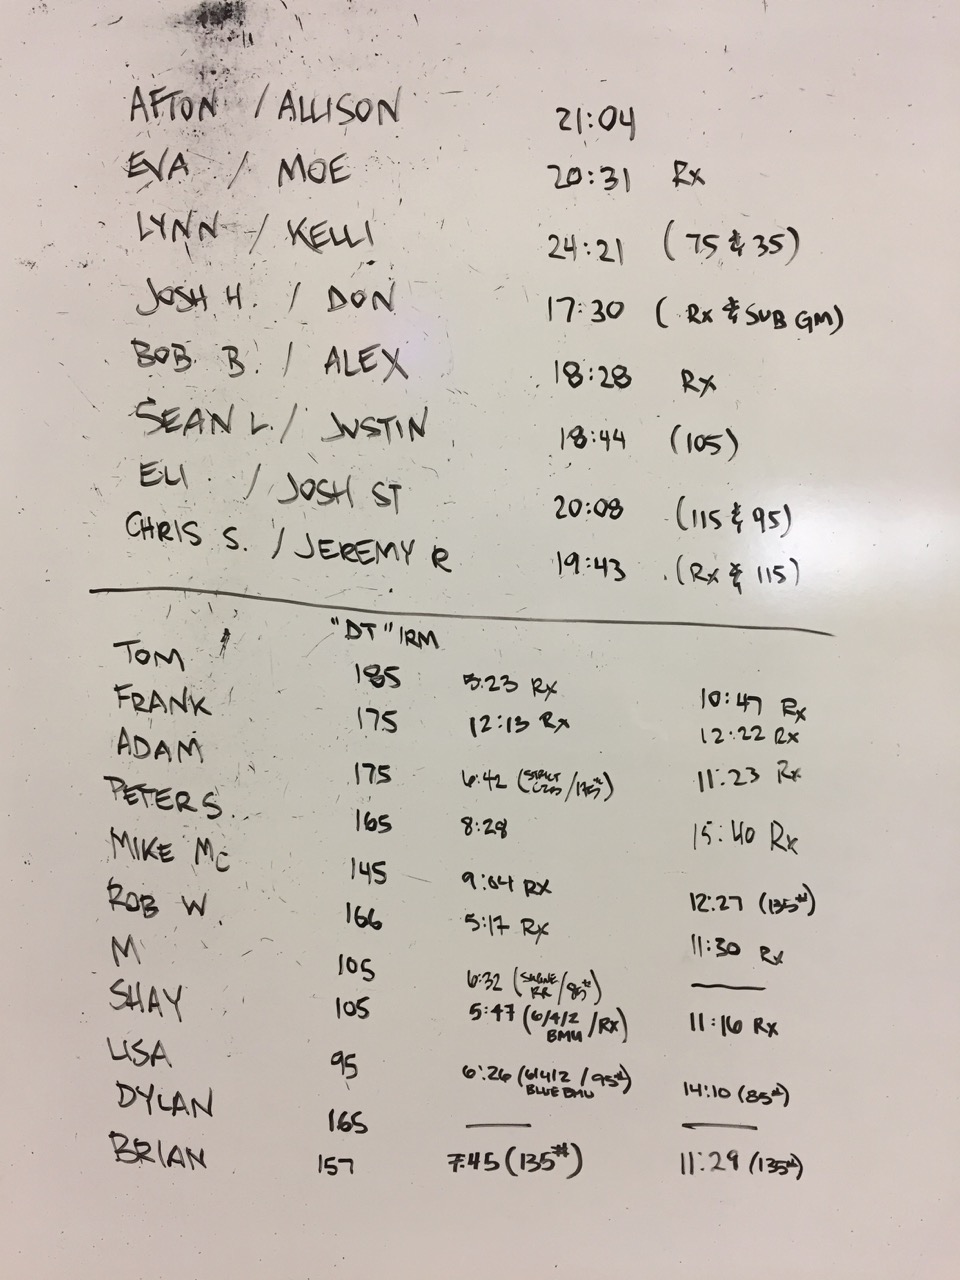 AFTON / ALLISON 21:04
EVA / MOE 20:31 Rx
LYNN / KELLI 24:21 (75 & 35)
JOSH H. / DON 17:30 (Rx & SUB GM)
BOB B. / ALEX 18:28 Rx
SEAN L. / JUSTIN 18:44 (105)
ELI / JOSH ST 20:08 (115 & 95)
CHRIS S. / JEREMY R 19:43 (Rx & 115)
"DT" 1RM
TOM 185 5:23 Rx 10:47 Rx
FRANK 175 12:13 Rx 12:22 Rx
ADAM 175 6:42 (STRICT /175#) 11:23 Rx
PETER S. 165 8:28 15:40 Rx
MIKE MC 145 9:04 Rx 12:27 (135#)
ROB W. 166 5:17 Rx 11:30 Rx
M 105 6:32 (RR/85#) —
SHAY 105 5:47 (6/4/2 BMU/Rx) 11:16 Rx
LISA 95 6:26 (6/4/2 BLUE BMU/95#) 14:10 (85#)
DYLAN 165 — —
BRIAN 157 7:45 (135#) 11:29 (135#)